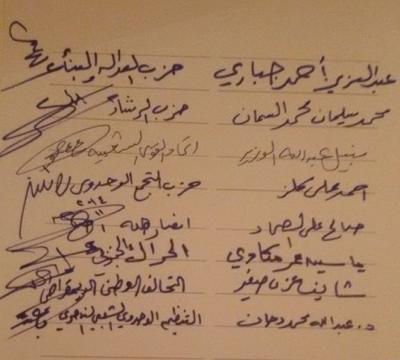 عبدالعزيز أحمد جباري حزب العدالة والبناء
محمد سليمان محمد السمان حزب الرشاد
نبيل عبدالله الوزير اتحاد القوى الشعبيه
احمد علي كلز حزب التجمع الوحدوي
صالح علي الصماد انصار الله
ياسين عمر مكاوي الحراك الجنوبي
التحالف الوطني الديمقراطي
د. عبدالله محمد دحان التنظيم الوحدوي الشعبي الناصري